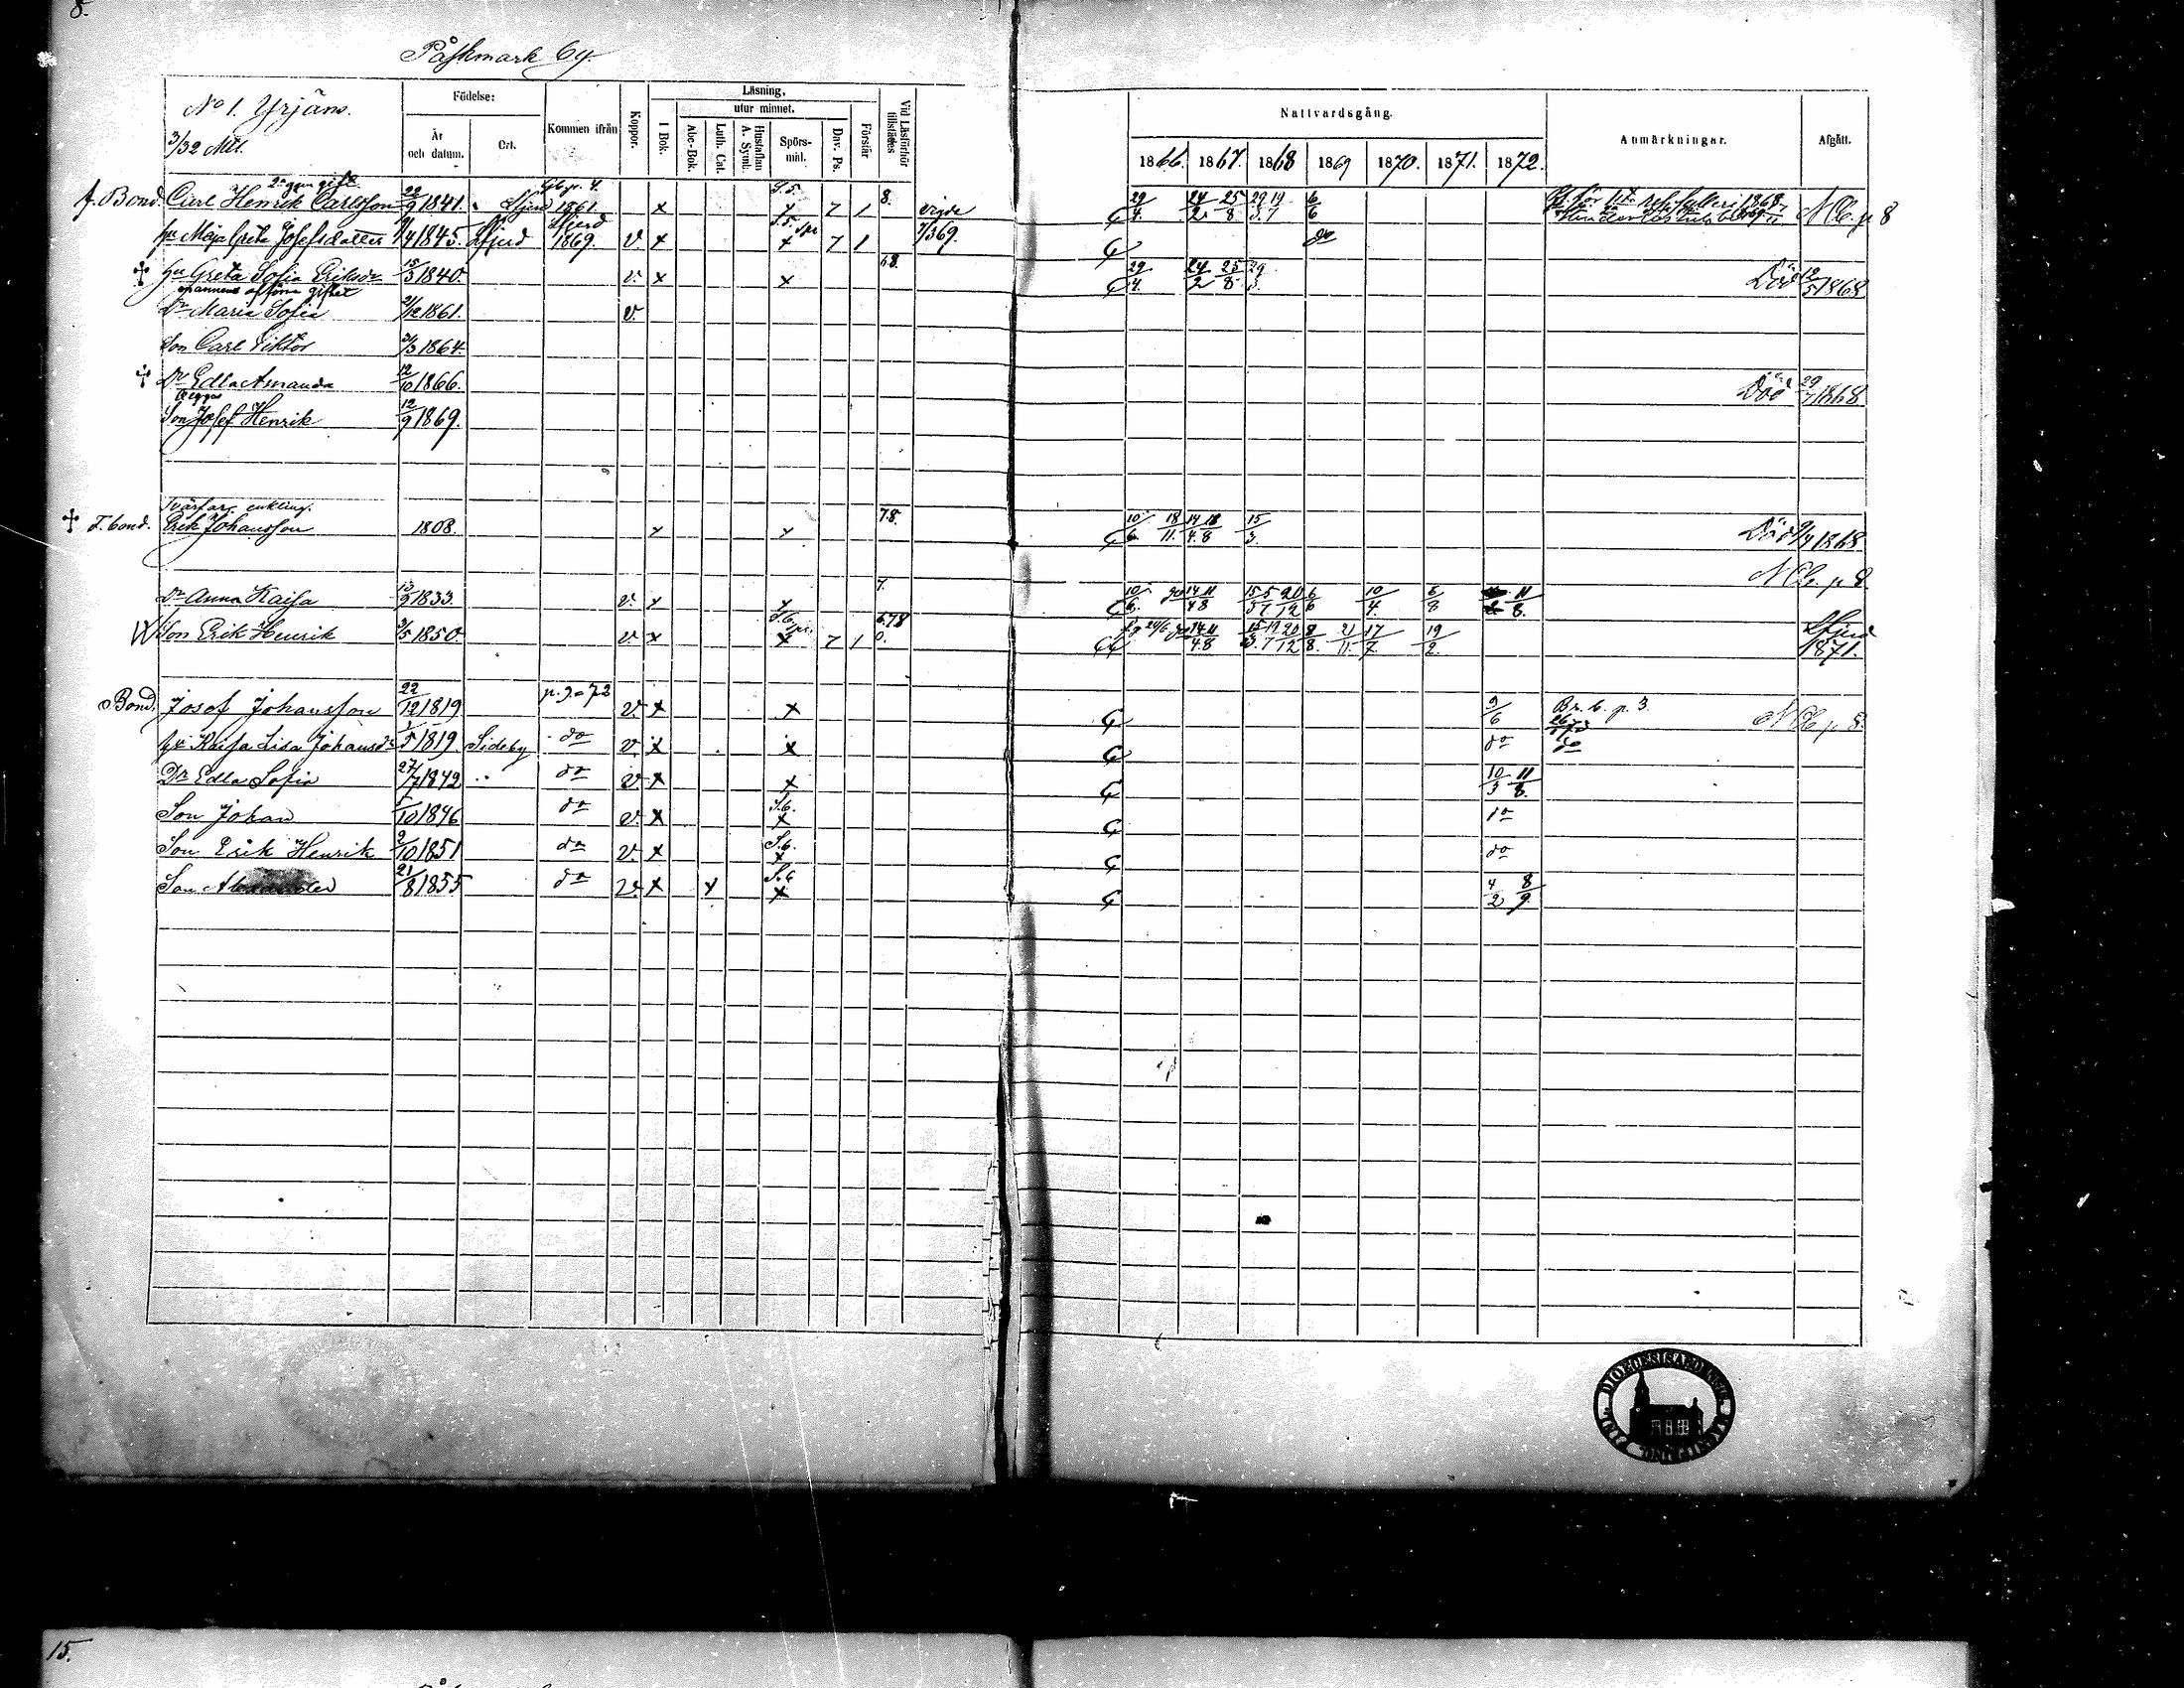 8.
Påskmark by.
No 1. Yrjäns.
3/32 Mtl.
Födelse:
År och datum.
Ort.
Kommen ifrån
Koppor.
Läsning,
I Bok.
utur minnet.
Abc-Bok.
Luth. Cat.
Hustaflan A. Symb.
Spörs-mål.
Dav. Ps.
Förstår
Vid Läsförhör tillstädes
Nattvardsgång.
1866. 1867. 1868 1869 1870. 1871. 1872.
Anmärkningar.
Afgått.
2a ggn gift
f. Bond. Carl Henrik Carlsson 22/9 1841. 1861. x S.5. x 7 1 8. vigde 29/4. 24/2 25/8 29/3. 19/7 6/6 N Cb. p 8
hu Maja Greta Josefsdotter 1/4 1845. Sfjerd Sfjerd 1869. v x S.5. x 7 1 7/3 69. do
hu Greta Sofia Eriksdr 15/3 1840. v. x x 68. 29/4. 24/2 25/8 29/3. Död 12/5 1868
mannens af förra giftet
Dr Maria Sofia 2/12 1861. v.
Son Carl Viktor 2/3 1864.
Dr Edla Amanda 12/10 1866. Död 29/7 1868
Son Josef Henrik 12/9 1869.
Svärfar. enkling.
F. bond. Erik Johansson 1808. x x 78. 10/6. 18/11. 14/4. 18/8 15/3. Död 9/4 1868
N Cb. p 8.
Dr Anna Kaisa 13/9 1833. v. x x 7. 10/6. 14/4 11/8 15/3 5/7 20/12 6/6 10/4. 6/8 11/8.
Son Erik Henrik 3/5 1850. v x S.6. x 7 1 678 0. 24/6 14/4 11/8 15/3. 19/7 20/12 8/8. 21/11. 17/7. 19/2. Sfjerd 1871.
Bond. Josef Johansson 22/12 1819 p. 9. 72 v. x x 9/6 Br. b. p 3. N Cb p 8.
hu Kaisa Lisa Johansdr 1/5 1819. Sideby do v. x x do do
Dr Edla Sofia 27/7 1842 do v. x x 10/3 11/8.
Son Johan 5/10 1846 do v. x S.6. x do
Son Erik Henrik 2/10 1851 do v. x S.6. x do
Son Alexander 21/8 1855 do v. x x S.6 x 4/2 8/9.
15.